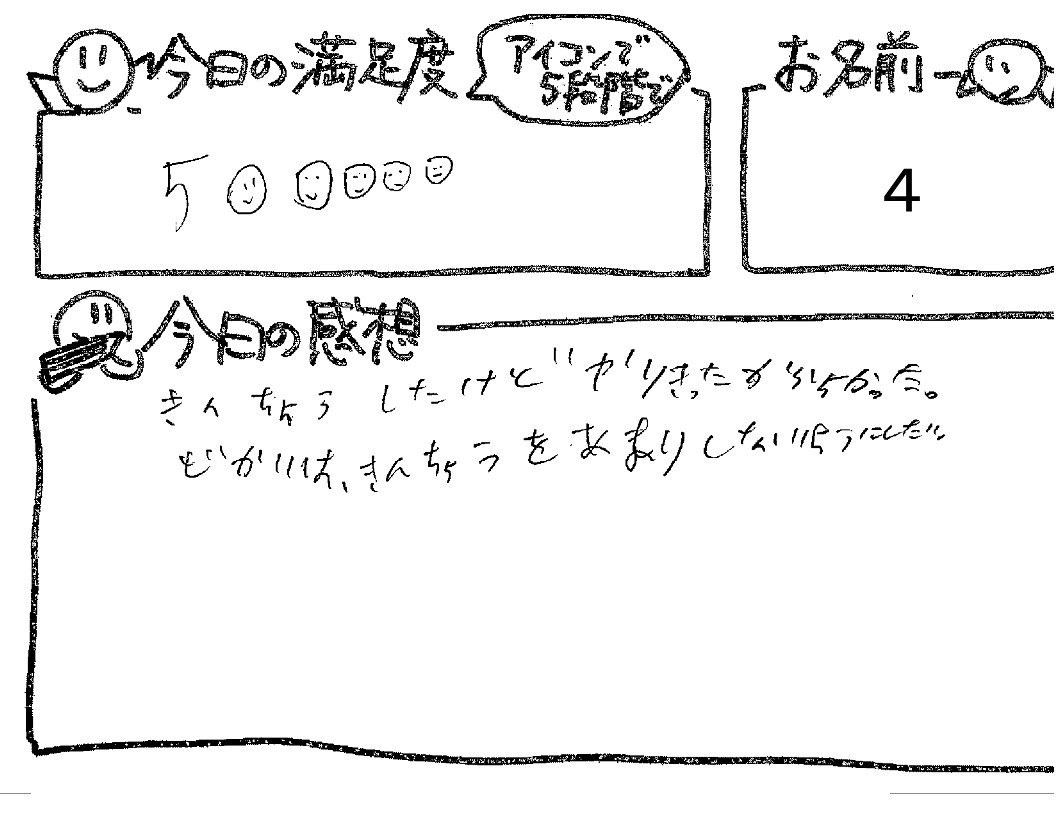 今日の満足度
アイコンで
5段階で
お名前
5
4
今日の感想
きんちょうしたけど やりきったからよかった。
きんちょうをあまりしない